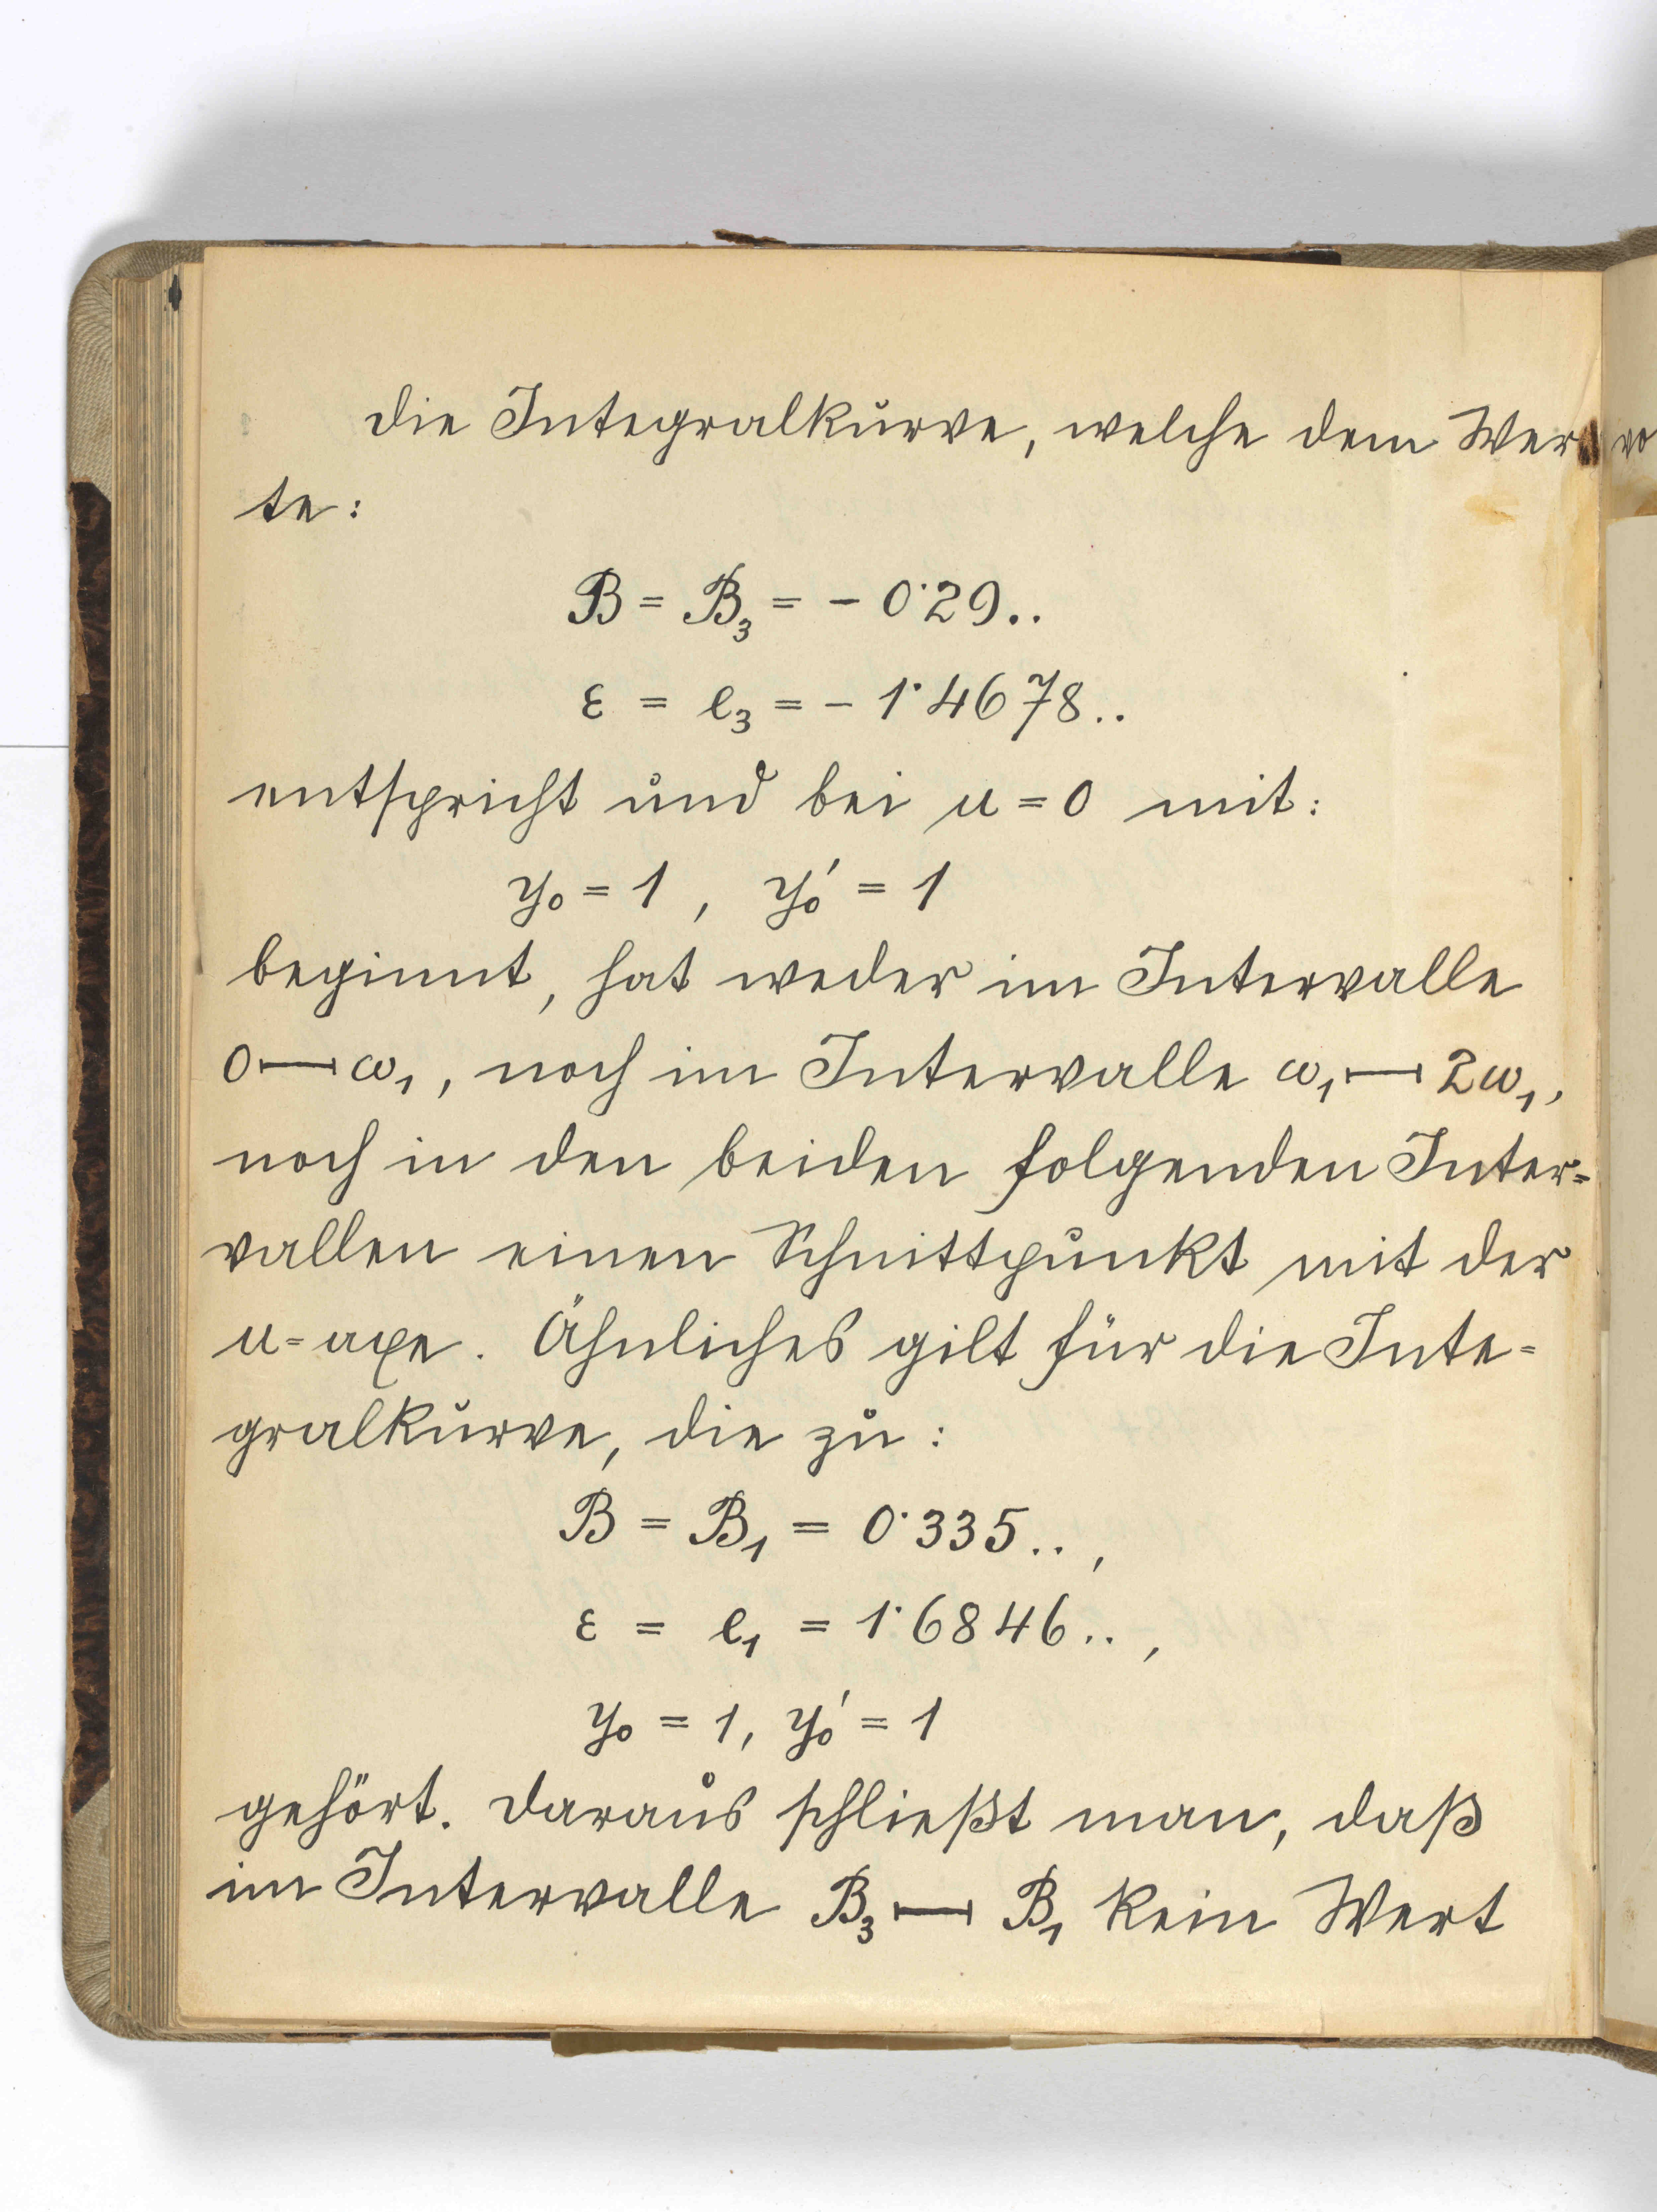 die Integralkurve, welche dem Wer
te:
B = B₃ = - 0·29..
ε = e₃ = - 1·4678..
entspricht und bei u = 0 mit:
y₀ = 1 , y₀' = 1
beginnt, hat weder im Intervalle
0⟼ω₁, noch im Intervalle ω₁⟼2ω₁,
noch in den beiden folgenden Inter=
vallen einen Schnittpunkt mit der
u=axe. Ähnliches gilt für die Inte=
gralkurve, die zu:
B = B₁ = 0·335.. ,
ε = e₁ = 1·6846.. ,
y₀ = 1, y₀' = 1
gehört. Daraus schließt man, daß
im Intervalle B₃⟼B₁ kein Wert